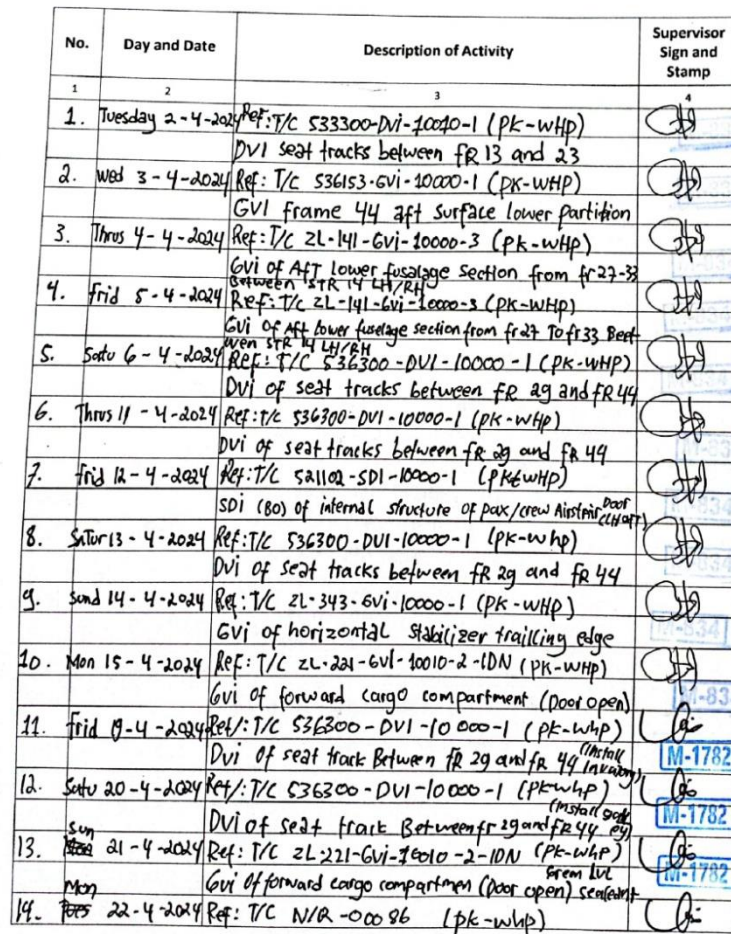 No. Day and Date Description of Activity Supervisor Sign and Stamp
1 2 3 4
1. Tuesday 2-4-2024 Ref: T/C 533300-DVI-10010-1 (PK-WHP)
DVI seat tracks between fR 13 and 23
2. Wed 3-4-2024 Ref: T/C 536153-GVI-10000-1 (PK-WHP)
GVI frame 44 aft surface lower partition
3. Thrus 4-4-2024 Ref: T/C ZL-141-GVI-10000-3 (PK-WHP)
GVi of AFT lower fusalage section from fr27-33
Between STR 14 LH/RH
4. Frid 5-4-2024 Ref: T/C ZL-141-GVI-10000-3 (PK-WHP)
GVI of Aft lower fuselage section from fr27 To fr33 Beet
wen STR 14 LH/RH
5. Satu 6-4-2024 Ref: T/C 536300-DVI-10000-1 (PK-WHP)
DVI of seat tracks between FR 29 and FR 44
6. Thrus 11-4-2024 Ref: T/C 536300-DVI-10000-1 (PK-WHP)
DVI of seat tracks between fR 29 and fR 44
7. Frid 12-4-2024 Ref: T/C 521102-SDI-10000-1 (PK-WHP)
SDi (BO) of internal structure of pax/crew Airstair Door
8. Satur 13-4-2024 Ref: T/C 536300-DVI-10000-1 (PK-WHP)
Dvi of seat tracks between fR 29 and fR 44
9. Sund 14-4-2024 Ref: T/C ZL-343-GVI-10000-1 (PK-WHP)
M-834
GVi of horizontal Stabilizer trailling edge
10. Mon 15-4-2024 Ref: T/C ZL-221-GVI-10010-2-IDN (PK-WHP)
GVi of forward cargo compartment (Door open)
11. Frid 19-4-2024 Ref/: T/C 536300-DVI-10000-1 (PK-WHP)
Dvi of seat track Between FR 29 and fR 44 (Install
M-1782
12. Satu 20-4-2024 Ref/: T/C 536300-DVI-10000-1 (PK-WHP)
DVI of seat track Between fr 29 and fR 44 (install
M-1782
13. Sun 21-4-2024 Ref: T/C ZL-221-GVI-10010-2-IDN (PK-WHP)
GVI of forward cargo compartmen (Door open) sealant
M-1782
14. Mon 22-4-2024 Ref: T/C N/R-00086 (PK-WHP)